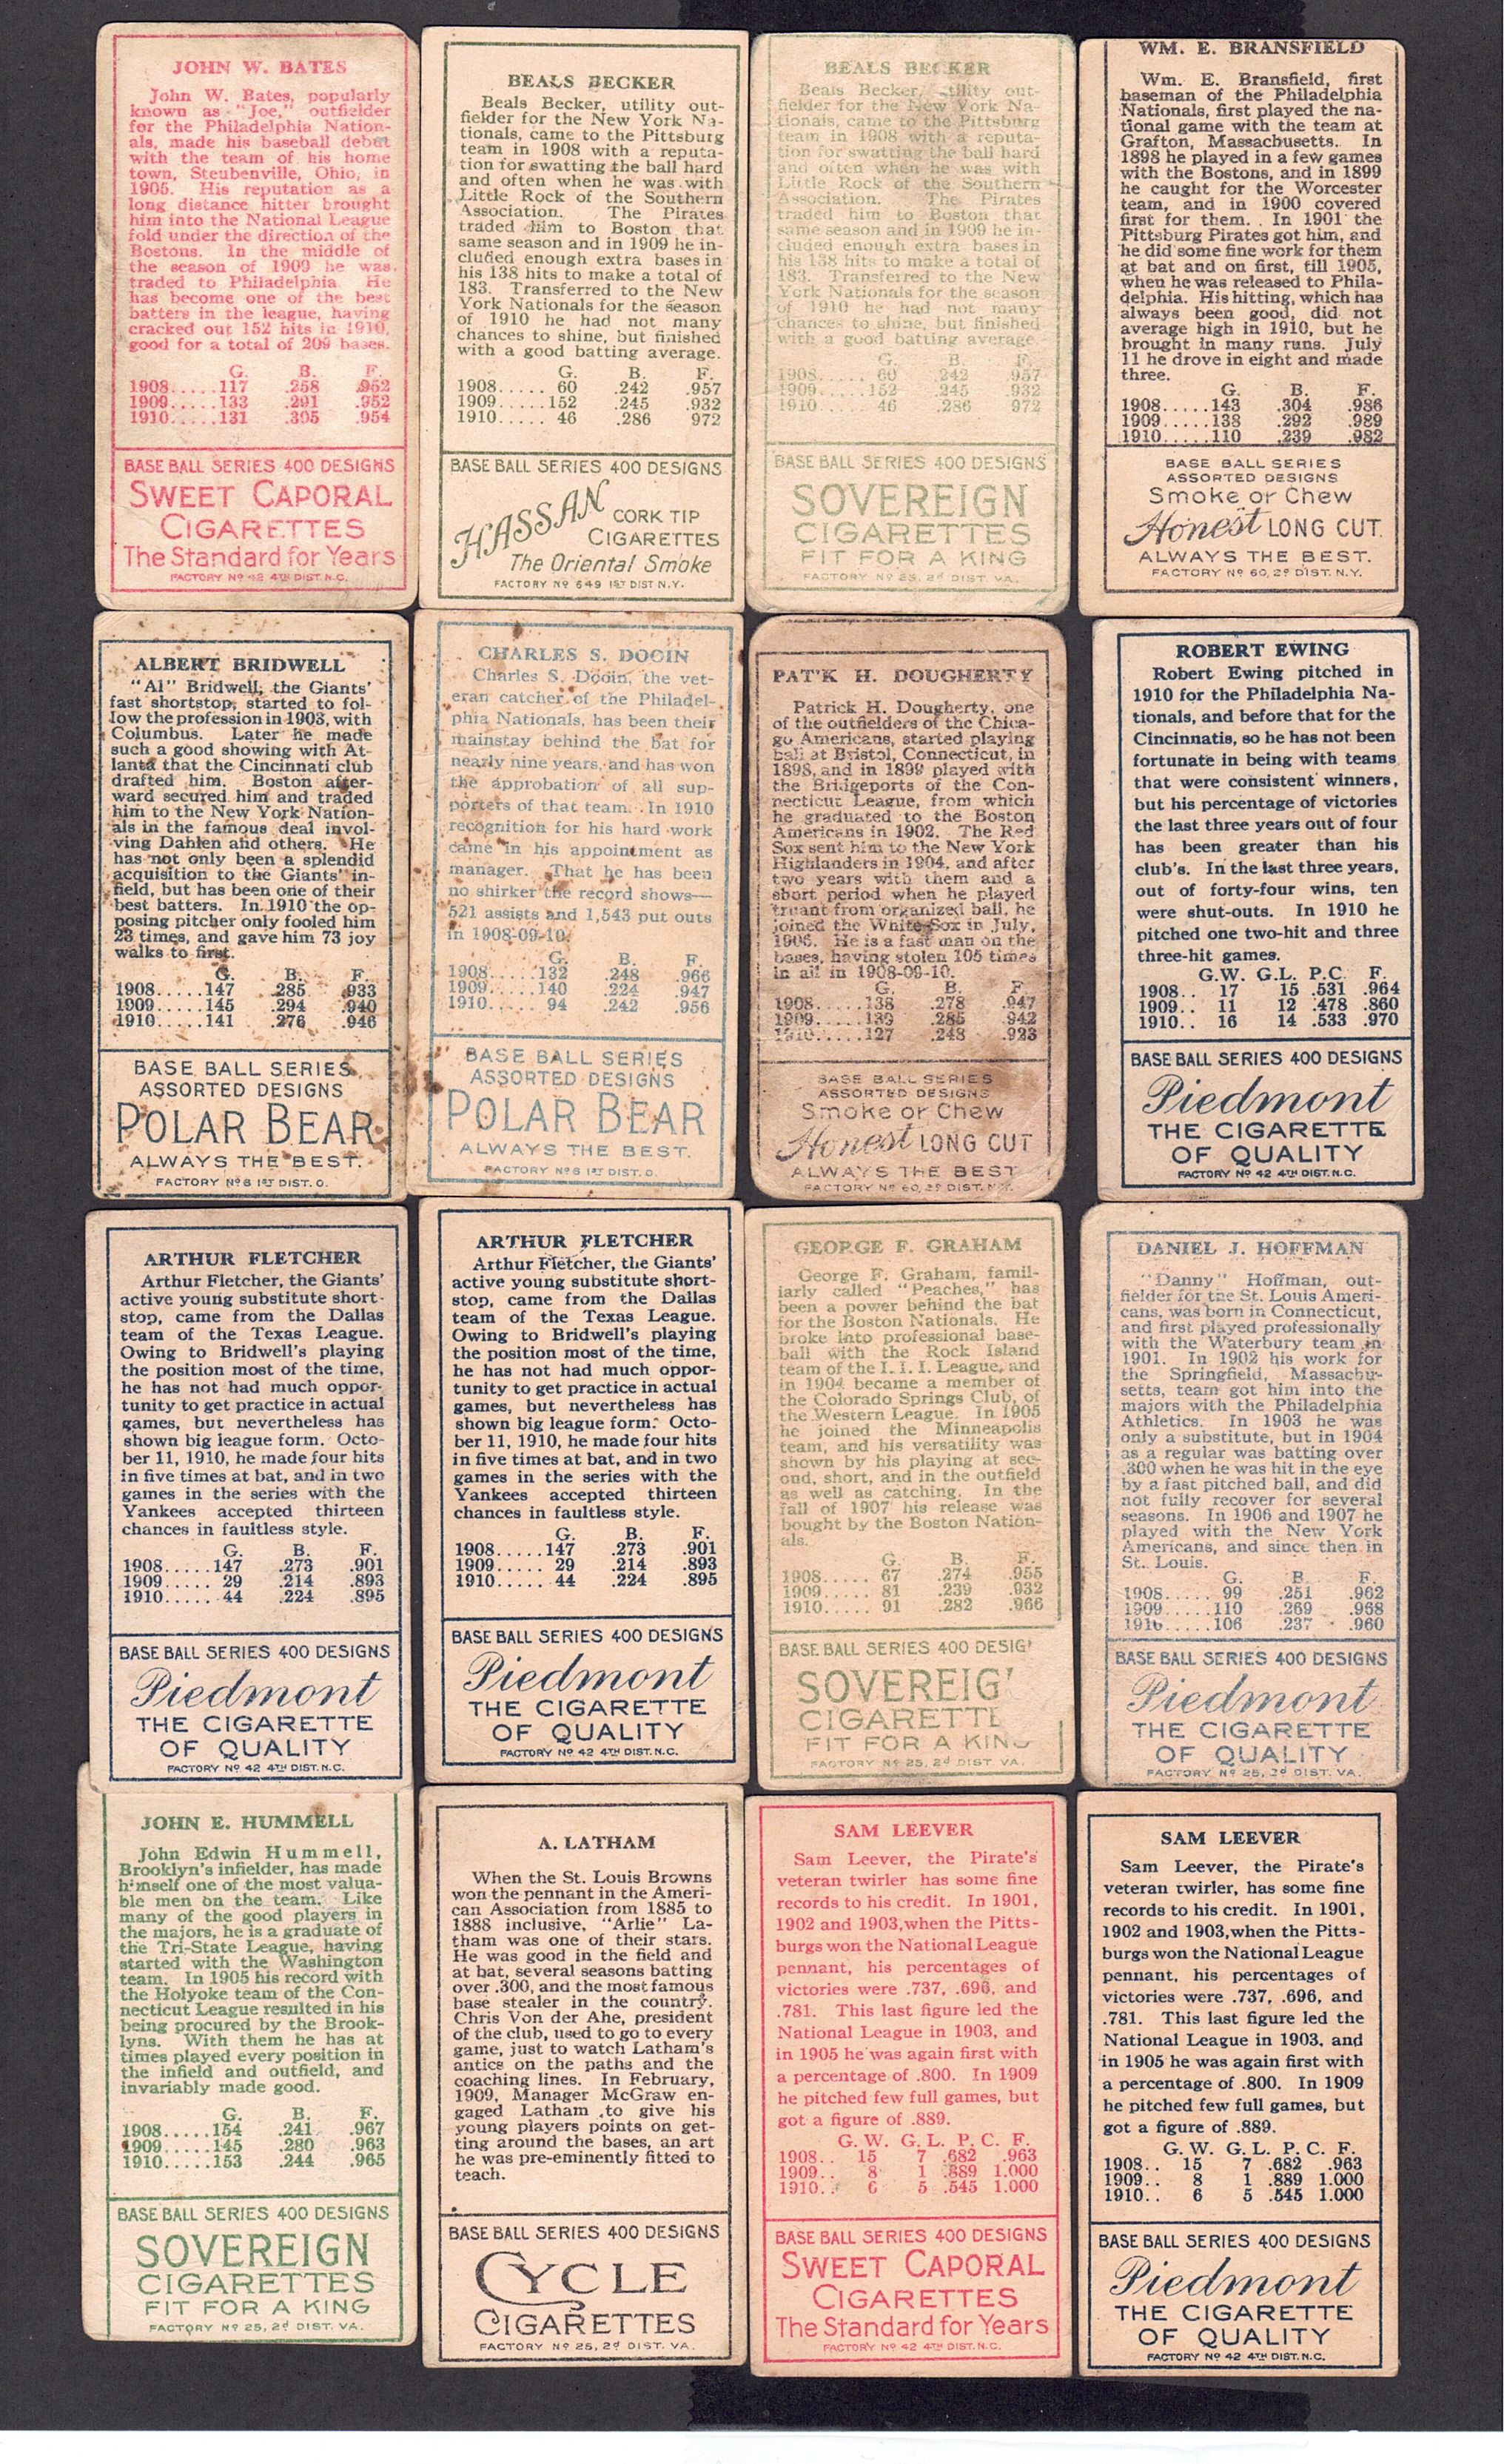 JOHN W. BATES
John W. Bates, popularly
known as "Joe," outfielder
for the Philadelphia Nation-
als, made his baseball debut
with the team of his home
town, Steubenville, Ohio, in
1905. His reputation as a
long distance hitter brought
him into the National League
fold under the direction of the
Bostons. In the middle of
the season of 1909 he was
traded to Philadelphia. He
has become one of the best
batters in the league, having
cracked out 152 hits in 1910,
good for a total of 209 bases.
G. B. F.
1908.....117 .258 .952
1909.....133 .291 .952
1910.....131 .305 .954
BASE BALL SERIES 400 DESIGNS
SWEET CAPORAL
CIGARETTES
The Standard for Years
FACTORY Nº 42 4TH DIST. N.C.
BEALS BECKER
Beals Becker, utility out-
fielder for the New York Na-
tionals, came to the Pittsburg
team in 1908 with a reputa-
tion for swatting the ball hard
and often when he was with
Little Rock of the Southern
Association. The Pirates
traded him to Boston that
same season and in 1909 he in-
cluded enough extra bases in
his 138 hits to make a total of
183. Transferred to the New
York Nationals for the season
of 1910 he had not many
chances to shine, but finished
with a good batting average.
G. B. F.
1908..... 60 .242 .957
1909.....152 .245 .932
1910..... 46 .286 972
BASE BALL SERIES 400 DESIGNS
HASSAN CORK TIP
CIGARETTES
The Oriental Smoke
FACTORY Nº 649 1ST DIST N.Y.
BEALS BECKER
Beals Becker, utility out-
fielder for the New York Na-
tionals, came to the Pittsburg
team in 1908 with a reputa-
tion for swatting the ball hard
and often when he was with
Little Rock of the Southern
Association. The Pirates
traded him to Boston that
same season and in 1909 he in-
cluded enough extra bases in
his 138 hits to make a total of
183. Transferred to the New
York Nationals for the season
of 1910 he had not many
chances to shine, but finished
with a good batting average
G. B. F.
1908...... 60 .242 .957
1909.....152 .245 .932
1910..... 46 .286 972
BASE BALL SERIES 400 DESIGNS
SOVEREIGN
CIGARETTES
FIT FOR A KING
FACTORY Nº 25, 2d DIST. VA.
WM. E. BRANSFIELD
Wm. E. Bransfield, first
baseman of the Philadelphia
Nationals, first played the na-
tional game with the team at
Grafton, Massachusetts. In
1898 he played in a few games
with the Bostons, and in 1899
he caught for the Worcester
team, and in 1900 covered
first for them. In 1901 the
Pittsburg Pirates got him, and
he did some fine work for them
at bat and on first, till 1905,
when he was released to Phila-
delphia. His hitting, which has
always been good, did not
average high in 1910, but he
brought in many runs. July
11 he drove in eight and made
three.
G. B. F.
1908.....143 .304 .986
1909.....138 .292 .989
1910.....110 .239 .982
BASE BALL SERIES
ASSORTED DESIGNS
Smoke or Chew
Honest LONG CUT.
ALWAYS THE BEST.
FACTORY Nº 60, 2d DIST. N.Y.
ALBERT BRIDWELL
"Al" Bridwell, the Giants'
fast shortstop, started to fol-
low the profession in 1903, with
Columbus. Later he made
such a good showing with At-
lanta that the Cincinnati club
drafted him. Boston after-
ward secured him and traded
him to the New York Nation-
als in the famous deal invol-
ving Dahlen and others. He
has not only been a splendid
acquisition to the Giants' in-
field, but has been one of their
best batters. In 1910 the op-
posing pitcher only fooled him
23 times, and gave him 73 joy
walks to first.
G. B. F.
1908.....147 .285 .933
1909.....145 .294 .940
1910.....141 .276 .946
BASE BALL SERIES
ASSORTED DESIGNS
POLAR BEAR
ALWAYS THE BEST.
FACTORY Nº 6 1ST DIST. O.
CHARLES S. DOOIN
Charles S. Dooin, the vet-
eran catcher of the Philadel-
phia Nationals, has been their
mainstay behind the bat for
nearly nine years, and has won
the approbation of all sup-
porters of that team. In 1910
recognition for his hard work
came in his appointment as
manager. That he has been
no shirker the record shows—
521 assists and 1,543 put outs
in 1908-09-10.
G. B. F.
1908.....132 .248 .966
1909.....140 .224 .947
1910..... 94 .242 .956
BASE BALL SERIES
ASSORTED DESIGNS
POLAR BEAR
ALWAYS THE BEST.
FACTORY Nº 6 1ST DIST. O.
PAT'K H. DOUGHERTY
Patrick H. Dougherty, one
of the outfielders of the Chica-
go Americans, started playing
ball at Bristol, Connecticut, in
1898, and in 1899 played with
the Bridgeports of the Con-
necticut League, from which
he graduated to the Boston
Americans in 1902. The Red
Sox sent him to the New York
Highlanders in 1904, and after
two years with them and a
short period when he played
truant from organized ball, he
joined the White Sox in July,
1906. He is a fast man on the
bases, having stolen 105 times
in all in 1908-09-10.
G. B. F.
1908.....138 .278 .947
1909.....139 .285 .942
1910.....127 .248 .923
BASE BALL SERIES
ASSORTED DESIGNS
Smoke or Chew
Honest LONG CUT
ALWAYS THE BEST
FACTORY Nº 60, 2d DIST. N.Y.
ROBERT EWING
Robert Ewing pitched in
1910 for the Philadelphia Na-
tionals, and before that for the
Cincinnatis, so he has not been
fortunate in being with teams
that were consistent winners,
but his percentage of victories
the last three years out of four
has been greater than his
club's. In the last three years,
out of forty-four wins, ten
were shut-outs. In 1910 he
pitched one two-hit and three
three-hit games.
G.W. G.L. P.C. F.
1908.. 17 15 .531 .964
1909.. 11 12 .478 .860
1910.. 16 14 .533 .970
BASE BALL SERIES 400 DESIGNS
Piedmont
THE CIGARETTE
OF QUALITY
FACTORY Nº 42 4TH DIST. N.C.
ARTHUR FLETCHER
Arthur Fletcher, the Giants'
active young substitute short-
stop, came from the Dallas
team of the Texas League.
Owing to Bridwell's playing
the position most of the time,
he has not had much oppor-
tunity to get practice in actual
games, but nevertheless has
shown big league form. Octo-
ber 11, 1910, he made four hits
in five times at bat, and in two
games in the series with the
Yankees accepted thirteen
chances in faultless style.
G. B. F.
1908.....147 .273 .901
1909..... 29 .214 .893
1910..... 44 .224 .895
BASE BALL SERIES 400 DESIGNS
Piedmont
THE CIGARETTE
OF QUALITY
FACTORY Nº 42 4TH DIST. N.C.
ARTHUR FLETCHER
Arthur Fletcher, the Giants'
active young substitute short-
stop, came from the Dallas
team of the Texas League.
Owing to Bridwell's playing
the position most of the time,
he has not had much oppor-
tunity to get practice in actual
games, but nevertheless has
shown big league form. Octo-
ber 11, 1910, he made four hits
in five times at bat, and in two
games in the series with the
Yankees accepted thirteen
chances in faultless style.
G. B. F.
1908.....147 .273 .901
1909..... 29 .214 .893
1910..... 44 .224 .895
BASE BALL SERIES 400 DESIGNS
Piedmont
THE CIGARETTE
OF QUALITY
FACTORY Nº 42 4TH DIST. N.C.
GEORGE F. GRAHAM
George F. Graham, famil-
iarly called "Peaches," has
been a power behind the bat
for the Boston Nationals. He
broke into professional base-
ball with the Rock Island
team of the I. I. I. League, and
in 1904 became a member of
the Colorado Springs Club, of
the Western League. In 1905
he joined the Minneapolis
team, and his versatility was
shown by his playing at sec-
ond, short, and in the outfield
as well as catching. In the
fall of 1907 his release was
bought by the Boston Nation-
als.
G. B. F.
1908..... 67 .274 .955
1909..... 81 .239 .932
1910..... 91 .282 .966
BASE BALL SERIES 400 DESIG
SOVEREIG
CIGARETTE
FIT FOR A KING
FACTORY Nº 25, 2d DIST. VA.
DANIEL J. HOFFMAN
"Danny" Hoffman, out-
fielder for the St. Louis Ameri-
cans, was born in Connecticut,
and first played professionally
with the Waterbury team in
1901. In 1902 his work for
the Springfield, Massachu-
setts, team got him into the
majors with the Philadelphia
Athletics. In 1903 he was
only a substitute, but in 1904
as a regular was batting over
.300 when he was hit in the eye
by a fast pitched ball, and did
not fully recover for several
seasons. In 1906 and 1907 he
played with the New York
Americans, and since then in
St. Louis.
G. B. F.
1908..... 99 .251 .962
1909.....110 .269 .968
1910.....106 .237 .960
BASE BALL SERIES 400 DESIGNS
Piedmont
THE CIGARETTE
OF QUALITY
FACTORY Nº 25, 2d DIST. VA.
JOHN E. HUMMELL
John Edwin Hummell,
Brooklyn's infielder, has made
himself one of the most valua-
ble men on the team. Like
many of the good players in
the majors, he is a graduate of
the Tri-State League, having
started with the Washington
team. In 1905 his record with
the Holyoke team of the Con-
necticut League resulted in his
being procured by the Brook-
lyns. With them he has at
times played every position in
the infield and outfield, and
invariably made good.
G. B. F.
1908.....154 .241 .967
1909.....145 .280 .963
1910.....153 .244 .965
BASE BALL SERIES 400 DESIGNS
SOVEREIGN
CIGARETTES
FIT FOR A KING
FACTORY Nº 25, 2d DIST. VA.
A. LATHAM
When the St. Louis Browns
won the pennant in the Ameri-
can Association from 1885 to
1888 inclusive, "Arlie" La-
tham was one of their stars.
He was good in the field and
at bat, several seasons batting
over .300, and the most famous
base stealer in the country.
Chris Von der Ahe, president
of the club, used to go to every
game, just to watch Latham's
antics on the paths and the
coaching lines. In February,
1909, Manager McGraw en-
gaged Latham to give his
young players points on get-
ting around the bases, an art
he was pre-eminently fitted to
teach.
BASE BALL SERIES 400 DESIGNS
CYCLE
CIGARETTES
FACTORY Nº 25, 2d DIST. VA.
SAM LEEVER
Sam Leever, the Pirate's
veteran twirler has some fine
records to his credit. In 1901,
1902 and 1903, when the Pitts-
burgs won the National League
pennant, his percentages of
victories were .737, .696, and
.781. This last figure led the
National League in 1903, and
in 1905 he was again first with
a percentage of .800. In 1909
he pitched few full games, but
got a figure of .889.
G. W. G. L. P. C. F.
1908.. 15 7 .682 .963
1909.. 8 1 .889 1.000
1910.. 6 5 .545 1.000
BASE BALL SERIES 400 DESIGNS
SWEET CAPORAL
CIGARETTES
The Standard for Years
FACTORY Nº 42 4TH DIST. N.C.
SAM LEEVER
Sam Leever, the Pirate's
veteran twirler, has some fine
records to his credit. In 1901,
1902 and 1903, when the Pitts-
burgs won the National League
pennant, his percentages of
victories were .737, .696, and
.781. This last figure led the
National League in 1903, and
in 1905 he was again first with
a percentage of .800. In 1909
he pitched few full games, but
got a figure of .889.
G. W. G. L. P. C. F.
1908.. 15 7 .682 .963
1909.. 8 1 .889 1.000
1910.. 6 5 .545 1.000
BASE BALL SERIES 400 DESIGNS
Piedmont
THE CIGARETTE
OF QUALITY
FACTORY Nº 42 4TH DIST. N.C.